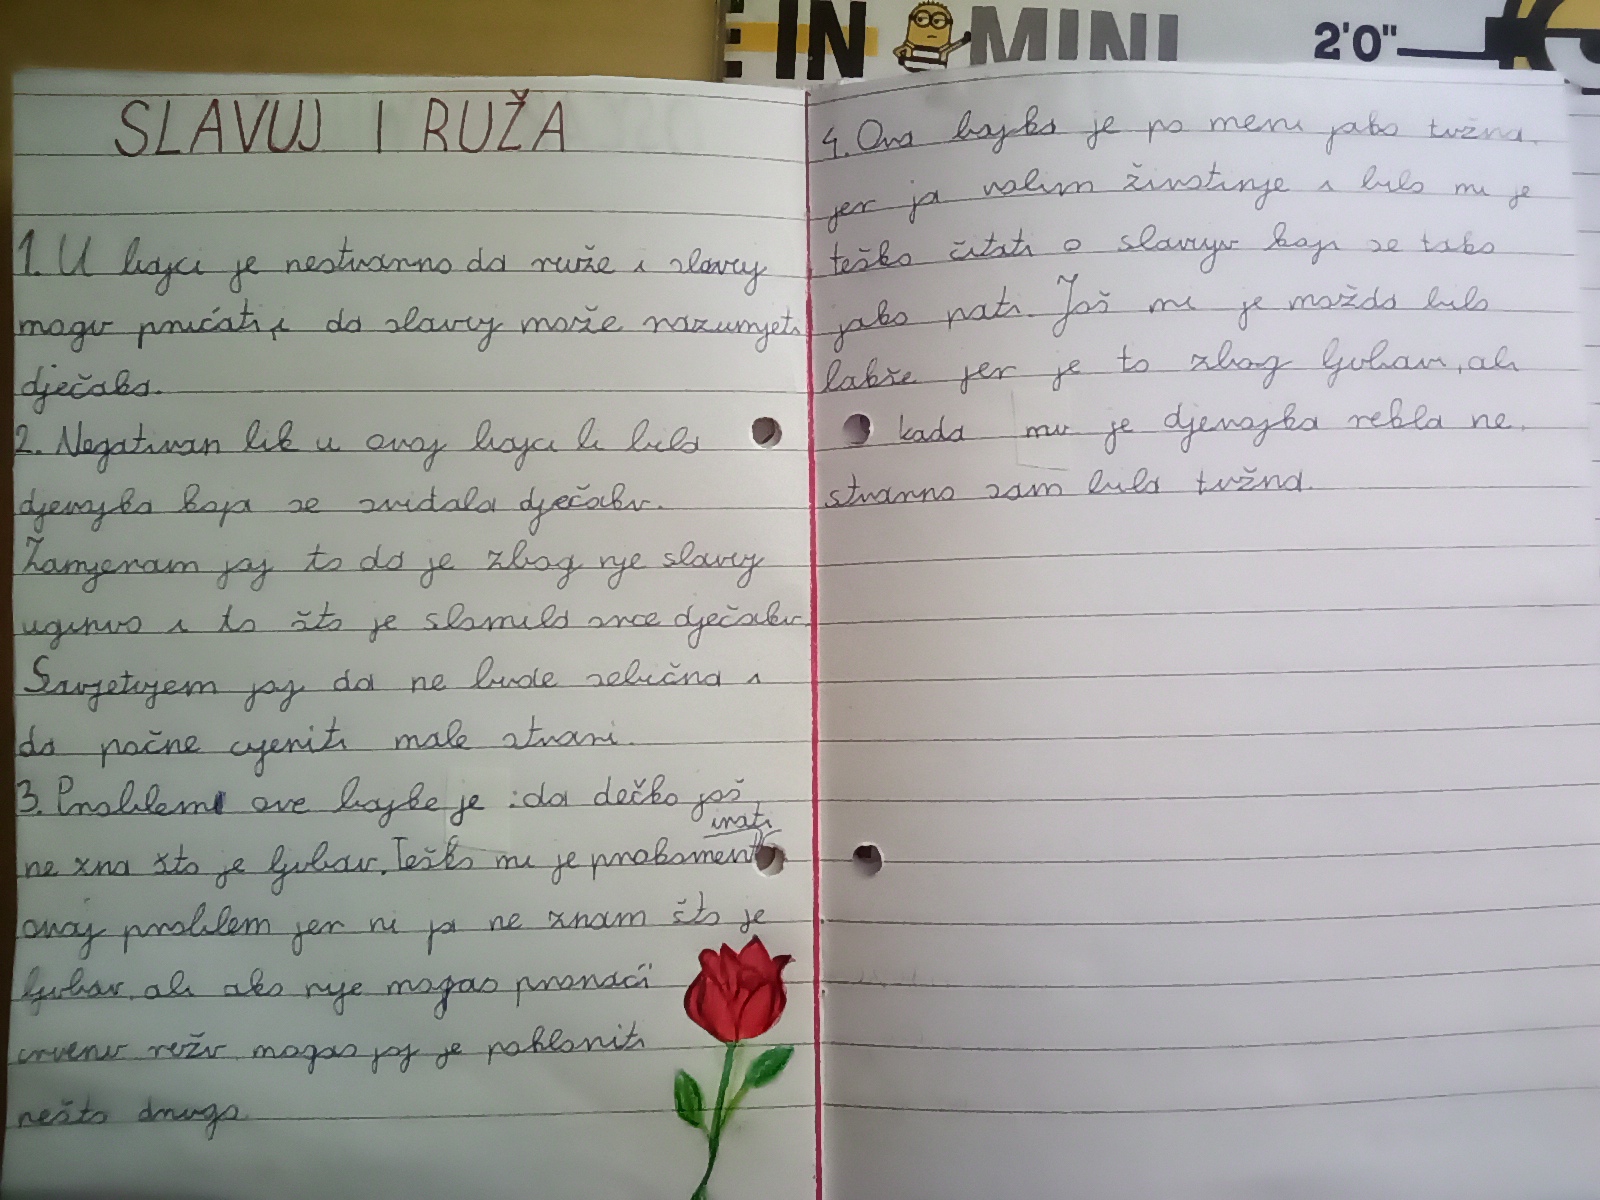 IN MINI 2'0"
SLAVUJ I RUŽA
1. U bajci je nestvarno da ruže i slavuj
mogu pričati i da slavuj može razumjeti
dječaka.
2. Negativan lik u ovoj bajci bi bila
djevojka koja se sviđala dječaku.
Zamjeram joj to da je zbog nje slavuj
uginuo i to što je slomila srce dječaku.
Savjetujem joj da ne bude sebična i
da počne cijeniti male stvari.
3. Problem ove bajke je :da dečko još
ne zna što je ljubav. Teško mi je prokoment
irati
ovaj problem jer ni ja ne znam što je
ljubav, ali ako nije mogao pronaći
crvenu ružu mogao joj je pokloniti
nešto drugo.
4. Ova bajka je po meni jako tužna
jer ja volim životinje i bilo mi je
teško čitati o slavuju koji se tako
jako pati. Još mi je možda bilo
lakše jer je to zbog ljubavi, ali
kada mu je djevojka rekla ne,
stvarno sam bila tužna.